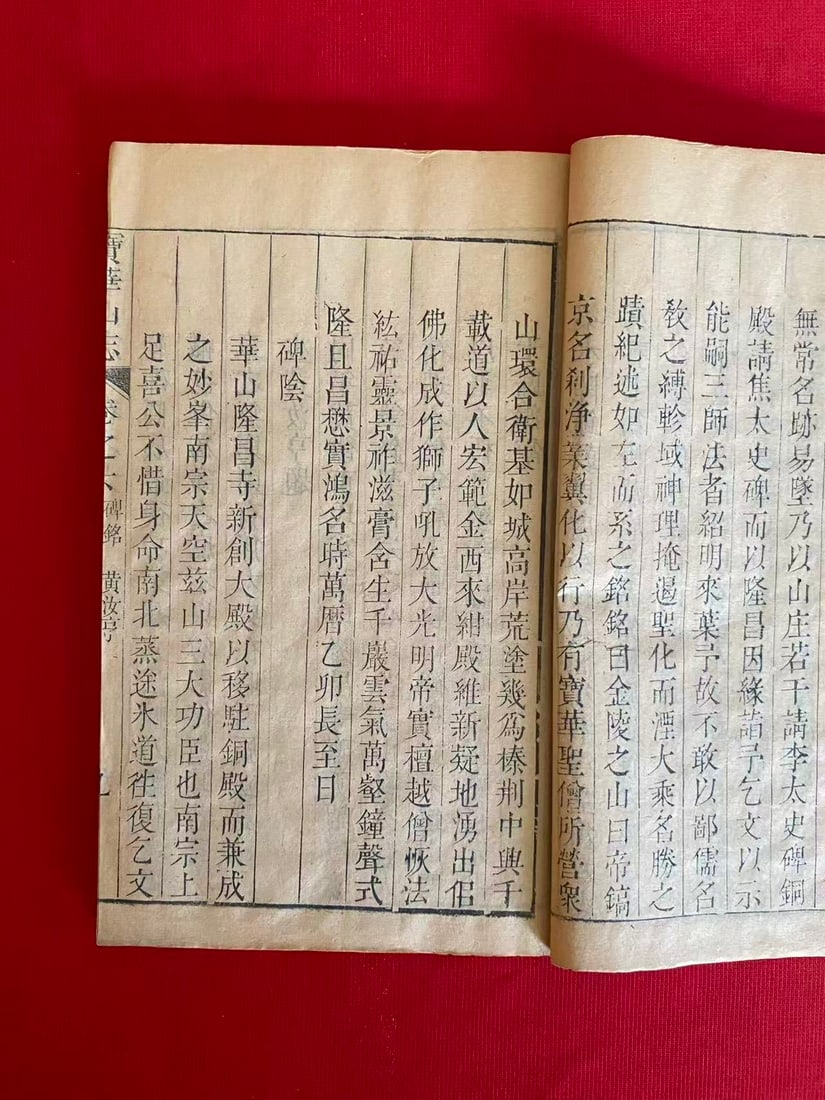 無常名跡易墜乃以山庄若干請李太史碑銅
殿請焦太史碑而以隆昌因緣詣予乞文以示
能嗣三師法者紹明來葉予故不敢以鄙儒名
教之縛軫域神理掩遏聖化而湮大乘名勝之
蹟紀述如左而系之銘銘曰金陵之山曰帝鎬
京名剎淨業翼化以行乃有寶華聖僧所營衆
山環合衛基如城高岸荒塗幾爲榛荆中興千
載道以人宏範金西來紺殿維新疑地湧出佀
佛化成作獅子吼放大光明帝實檀越僧恢法
紘祐靈景祚滋膏含生千巖雲氣萬壑鐘聲式
隆且昌懋實鴻名時萬曆乙卯長至日
碑陰
華山隆昌寺新創大殿以移駐銅殿而兼成
之妙峯南宗天空茲山三大功臣也南宗上
足喜公不惜身命南北蒸途氷道徃復乞文
寶華山志 卷之六 碑銘 黃汝亨 九